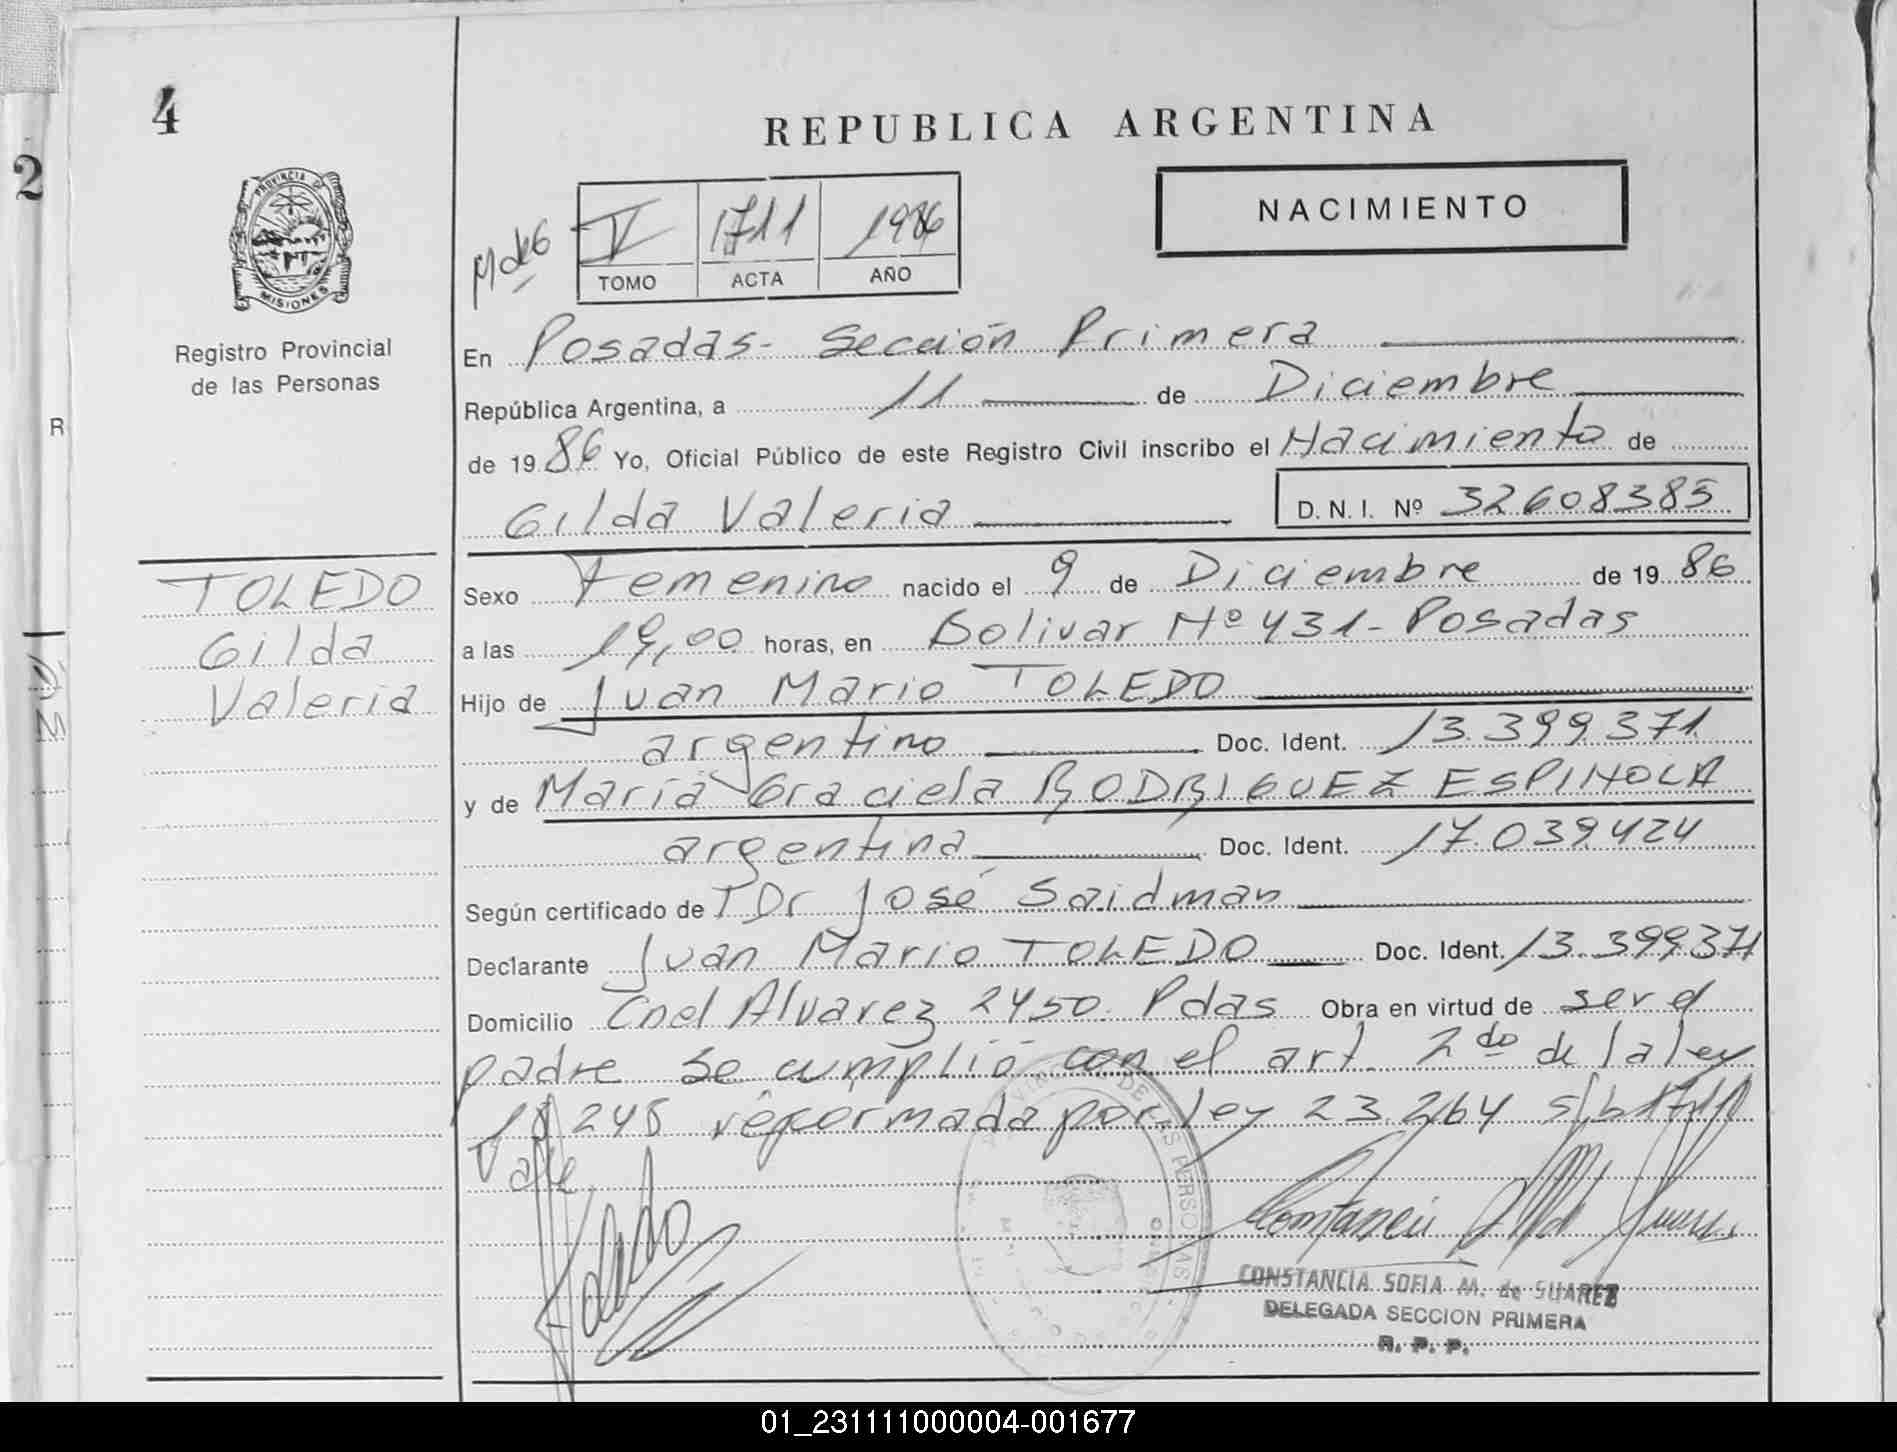 4
2
REPUBLICA ARGENTINA
PROVINCIA D
MISIONES
Registro Provincial
de las Personas
V 1711 1986
TOMO ACTA AÑO
NACIMIENTO
En Posadas- Sección Primera
República Argentina, a 11 de Diciembre
de 1986 Yo, Oficial Público de este Registro Civil inscribo el Nacimiento de
Gilda Valeria D. N. I. Nº 32608385
R
TOLEDO
Gilda
Valeria
Sexo Femenino nacido el 9 de Diciembre de 1986
a las 19,00 horas, en Bolivar Nº 431- Posadas
Hijo de Juan Mario TOLEDO
argentino Doc. Ident. 13.399.371
y de María Graciela RODRIGUEZ ESPINOLA
argentina Doc. Ident. 17.039.424
Según certificado de Dr José Saidman
Declarante Juan Mario TOLEDO Doc. Ident. 13.399371
Domicilio Cnel Alvarez 2450. Pdas Obra en virtud de ser el
padre se cumplió con el art. 2do de la ley
18248 reformada por ley 23.264
Vale
Toledo
CONSTANCIA SOFIA M. de SUAREZ
DELEGADA SECCION PRIMERA
R. P. P.
01_231111000004-001677